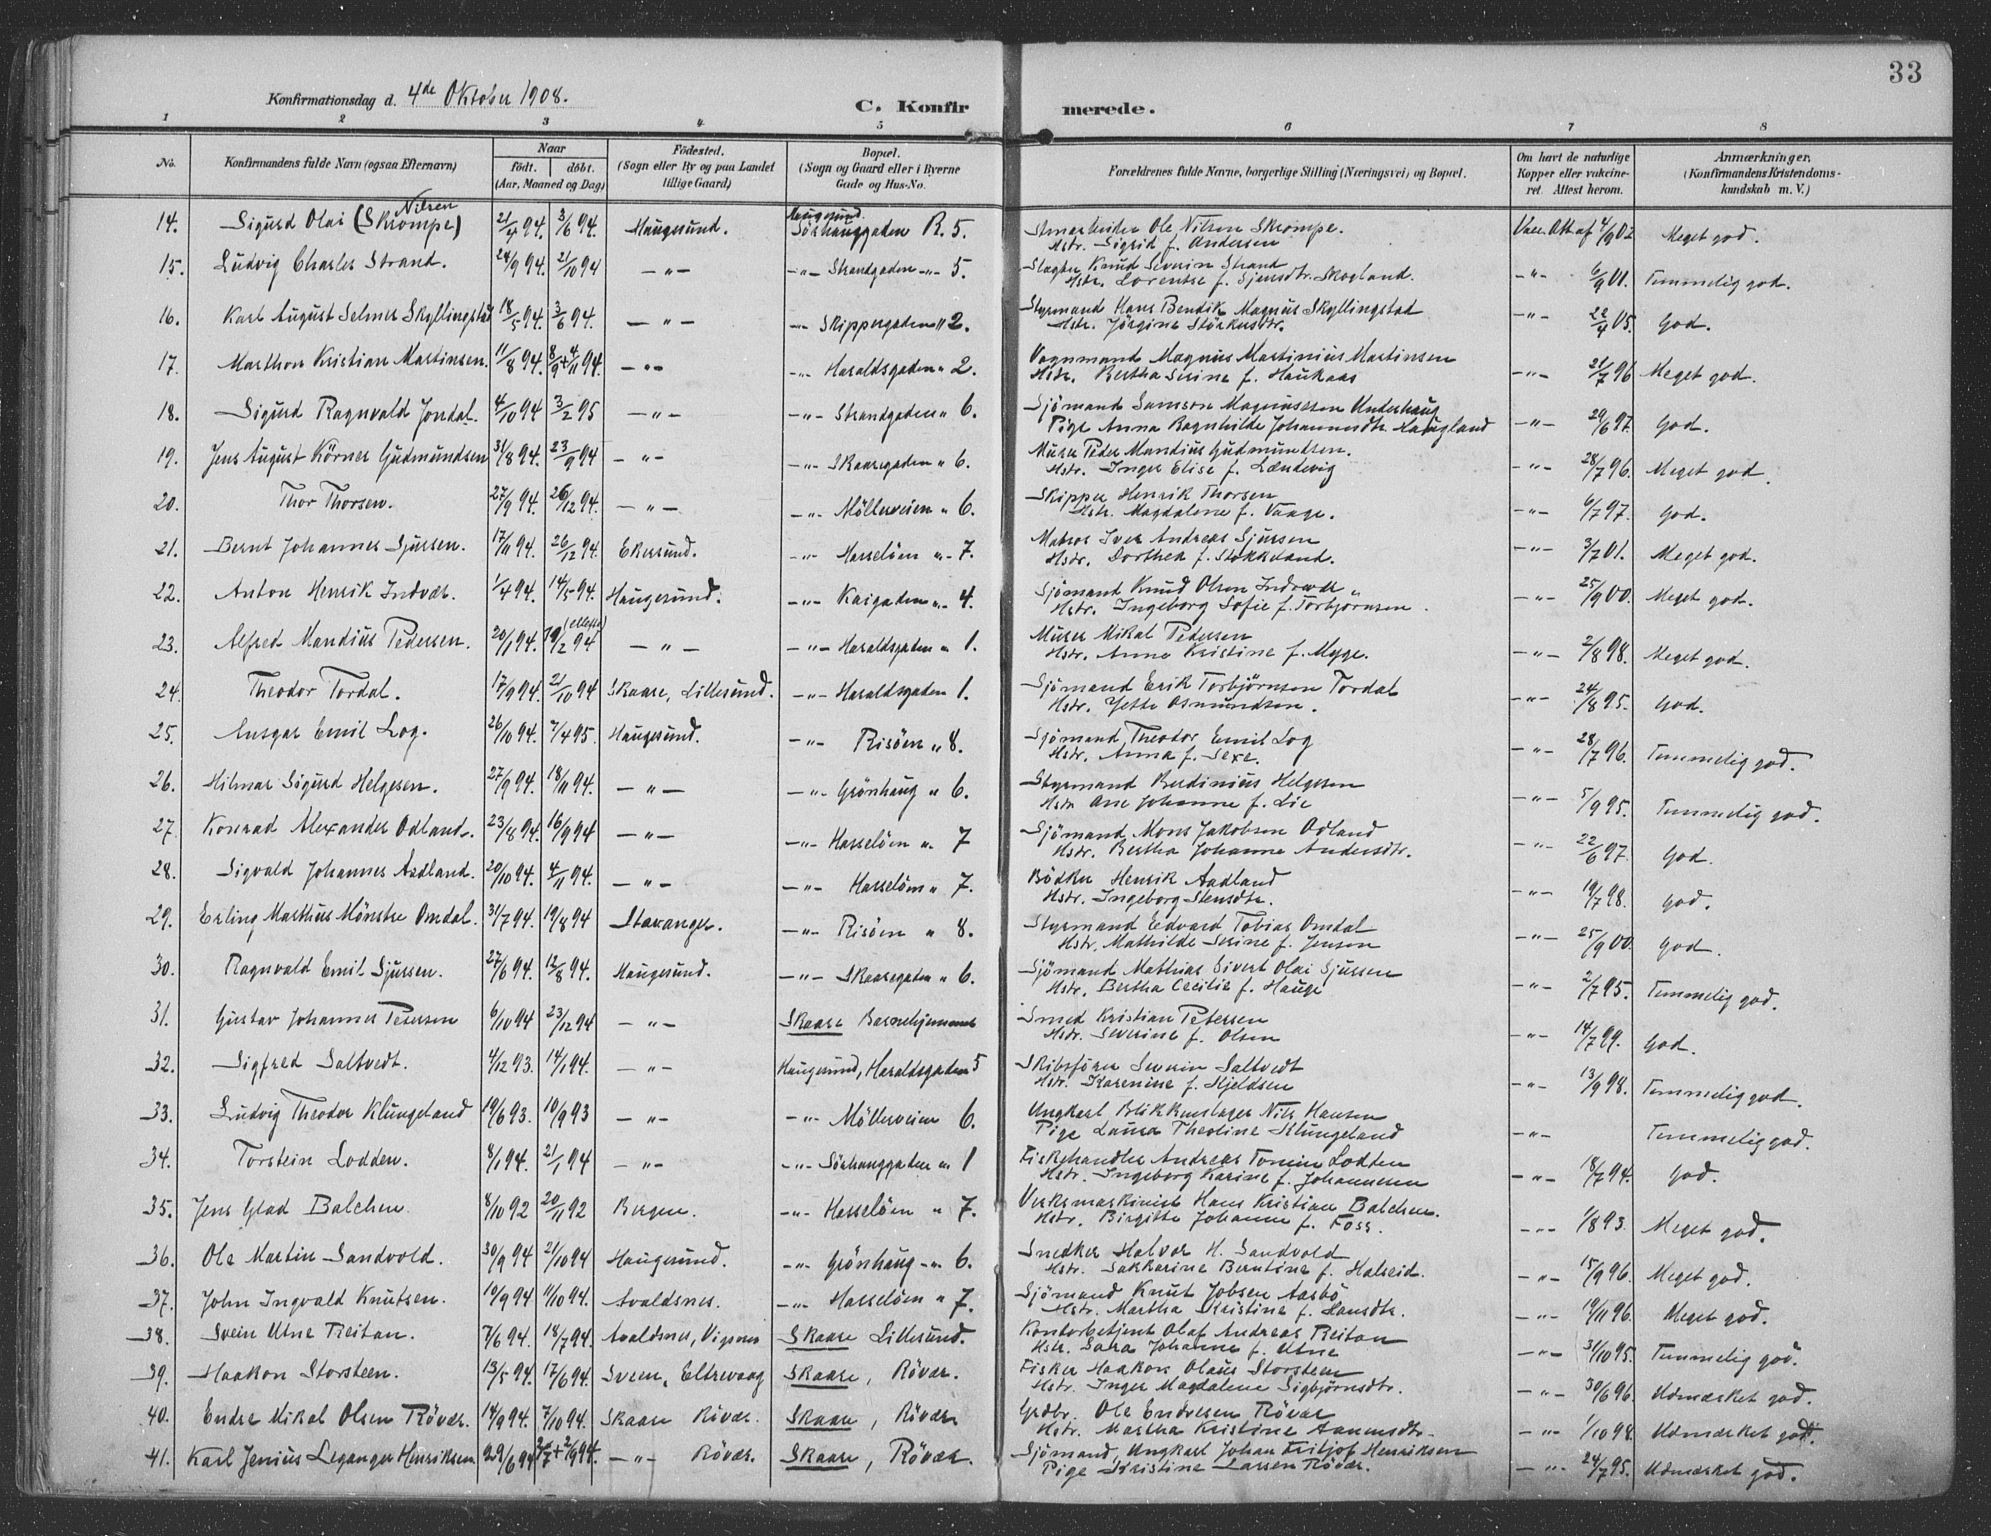 33
Konfirmationsdag d. 4de Oktober 1908.
C. Konfirmerede.
1 2 3 4 5 6 7 8
No. Konfirmandens fulde Navn (ogsaa Efternavn) Naar født. døbt. (Aar, Maaned og Dag) Fødested. (Sogn eller By og paa Landet tillige Gaard) Bopæl. (Sogn og Gaard eller i Byerne Gade og Hus-No. Forældrenes fulde Navne, borgerlige Stilling (Næringsvei) og Bopæl. Om havt de naturlige Kopper eller vakcineret. Attest herom. Anmærkninger. (Konfirmandens Kristendomskundskab m. V.)
14. Sigurd Olai Nilsen (Skrompe) 21/4 94. 3/6 94. Haugesund. Haugesund Sørhauggaden R. 5. Ole Nilsen Skrompe. Vacc. Att af 4/9 02 Meget god.
Hstr. Sigrid f. Andersen
15. Ludvig Charles Strand. 24/9 94. 21/10 94 —"— —"— Strandgaden —"— 5. Slagter Knud Severin Strand —"— 6/9 01. Temmelig god.
Hstr. Lorentse f. Sjursdtr. Skogland.
16. Karl August Selmer Skyllingstad 18/5 94. 3/6 94. —"— —"— Skippergaden " 2. Styrmand Hans Bendik Magnus Skyllingstad —"— 22/4 05. God.
Hstr. Jørgine Størkersdtr.
17. Marthon Kristian Martinsen. 11/8 94. 8/9 + 4/11 94. —"— —"— Haraldsgaden " 2. Vognmand Magnus Martinius Martinsen —"— 21/7 96 Meget god.
Hstr. Bertha Serine f. Haukaas
18. Sigurd Ragnvald Jondal. 4/10 94 3/2 95 —"— —"— Strandgaden " 6. Sjømand Samson Magnussen Underhaug —"— 29/6 97. God.
Pige Anna Ragnhilde Johannesdtr. Haugland
19. Jens August Körner Gudmundsen 31/8 94. 23/9 94 —"— —"— Skaaregaden " 6. Murer Peder Mandius Gudmundsen. —"— 28/7 96. Meget god.
Hstr. Inger Elise f. Lændevig
20. Thor Thorsen. 27/9 94. 26/12 94. —"— —"— Møllerveien " 6. Skipper Henrik Thorsen —"— 6/7 97. God.
Hstr. Magdalene f. Vaage.
21. Bernt Johannes Sjursen. 17/11 94. 26/12 94. Ekersund. —"— Hasseløen " 7. Matros Iver Andreas Sjursen —"— 3/7 01. Meget god.
Hstr. Dorthea f. Stokkeland.
22. Anton Henrik Indvær. 1/4 94. 14/5 94. Haugesund. —"— Kaigaden " 4. Sjømand Knud Olsen —"— 25/9 00. Meget god.
Hstr. Ingeborg Sofie f. Torbjørnsen.
23. Alfred Mandius Pedersen. 20/1 94. 19/2 94 —"— —"— Haraldsgaden " 1. Murer Mikal Petersen —"— 2/8 98. Meget god.
Hstr. Anne Kristine f. Myge.
24. Theodor Tordal. 17/9 94. 21/10 94 Skaare, Lillesund. —"— Haraldsgaden 1. Sjømand Erik Torbjørnsen Tordal —"— 24/8 95. God.
Hstr. Jette Osmundsen.
25. Ansgar Emil Log. 26/10 94. 7/4 95. Haugesund. —"— Risøen " 8. Sjømand Theodor Emil Log —"— 28/7 96. Temmelig god.
Hstr. Anna f. Sexe.
26. Hilmar Sigurd Helgesen. 27/9 94. 18/11 94. —"— —"— Grønhaug " 6. Styrmand Berdinius Helgesen —"— 5/9 95. Temmelig god.
Hstr. Ane Johanne f. Lie
27. Konrad Alexander Odland. 23/8 94. 16/9 94 —"— —"— Hasseløen " 7 Sjømand Mons Jakobsen Odland —"— 22/6 97. God.
Hstr. Bertha Johanne Andersdtr.
28. Sigvald Johannes Aadland. 20/10 94. 4/11 94. —"— —"— Hasseløen " 7. Bødker Henrik Aadland —"— 19/7 98. God.
Hstr. Ingeborg Stensdtr.
29. Erling Marthius Mønstre Omdal. 31/7 94. 19/8 94 Stavanger. —"— Risøen " 8. Styrmand Edvard Tobias Omdal —"— 25/9 00. God.
Hstr. Mathilde Serine f. Jensen
30. Ragnvald Emil Sjursen. 27/6 94. 12/8 94. Haugesund. —"— Skaaregaden " 6. Sjømand Mathias Sivert Olai Sjursen —"— 2/7 95. Temmelig god.
Hstr. Bertha Cecilie f. Hauge
31. Gustav Johannes Petersen 6/10 94 23/12 94 —"— Skaare Barnehjemmet Smed Kristian Petersen —"— 14/7 99. God.
Hstr. Severine f. Olsen
32. Sigfred Saltvedt. 4/12 93. 14/1 94. —"— Haugesund, Haraldsgaden 5 Skibsfører Severin Saltvedt —"— 13/9 98. Temmelig god.
Hstr. Karenine f. Hjeldsen
33. Ludvig Theodor Klungeland 19/6 93. 10/9 93 —"— —"— Møllerveien 6. Ungkarl Blikkenslager Nils Hansen —"— Temmelig god.
Pige Laura Theoline Klungeland
34. Torstein Lodden. 8/1 94. 21/1 94 —"— —"— Sørhauggaden " 1 Fiskehandler Andreas Lodden —"— 18/7 94. God.
Hstr. Ingeborg Karine f. Johannesen
35. Jens Glad Balchen. 8/10 92 20/11 92 Bergen. —"— Hasseløen " 7. Verksmaskinist Hans Kristian Balchen. —"— 1/8 93. Meget god.
Hstr. Birgitte Johanne f. Foss.
36. Ole Martin Sandvold. 30/9 94 21/10 94 Haugesund. —"— Grønhaug —"— 6. Snedker Halvor H. Sandvold —"— 15/9 96. Meget god.
Hstr. Sakkarine Berntine f. Halseid.
37. John Ingvald Knutsen. 19/9 94 11/10 94. Avaldsnes. —"— Hasseløen " 7. Sjømand Knut Jobsen Aasbø —"— 19/11 96. Meget god.
Hstr. Martha Kristine f. Larsdtr.
38. Svein Utne Reitan. 7/6 94. 18/7 94. Avaldsnes, Vignes Skaare Lillesund. Kontorbetjent Olaf Andreas Reitan —"— 31/10 95. Temmelig god.
Hstr. Sara Johanne f. Utne
39. Haakon Storsteen. 13/5 94. 17/6 94. Sveen, Eltrevaag Skaare, Røvær. Fisker Haakon Olaus Storsteen —"— 30/6 96. Udmærket god.
Hstr. Inger Magdalene Sigbjørnsdtr.
40. Endre Mikal Olsen Røvær. 14/9 94. 7/10 94. Skaare Røvær. Skaare, Røvær Grdbr. Ole Endresen Røvær —"— 1/10 98. Udmærket god.
Hstr. Martha Kristine Aanensdtr.
41. Karl Jenius Leganger Henriksen 29/6 94 2/9 94. —"— Røvær. Skaare, Røvær. Sjømand, Ungkarl Johan Fritjof Henriksen —"— 24/7 95. Udmærket god.
Pige Kristine Larsen Røvær.